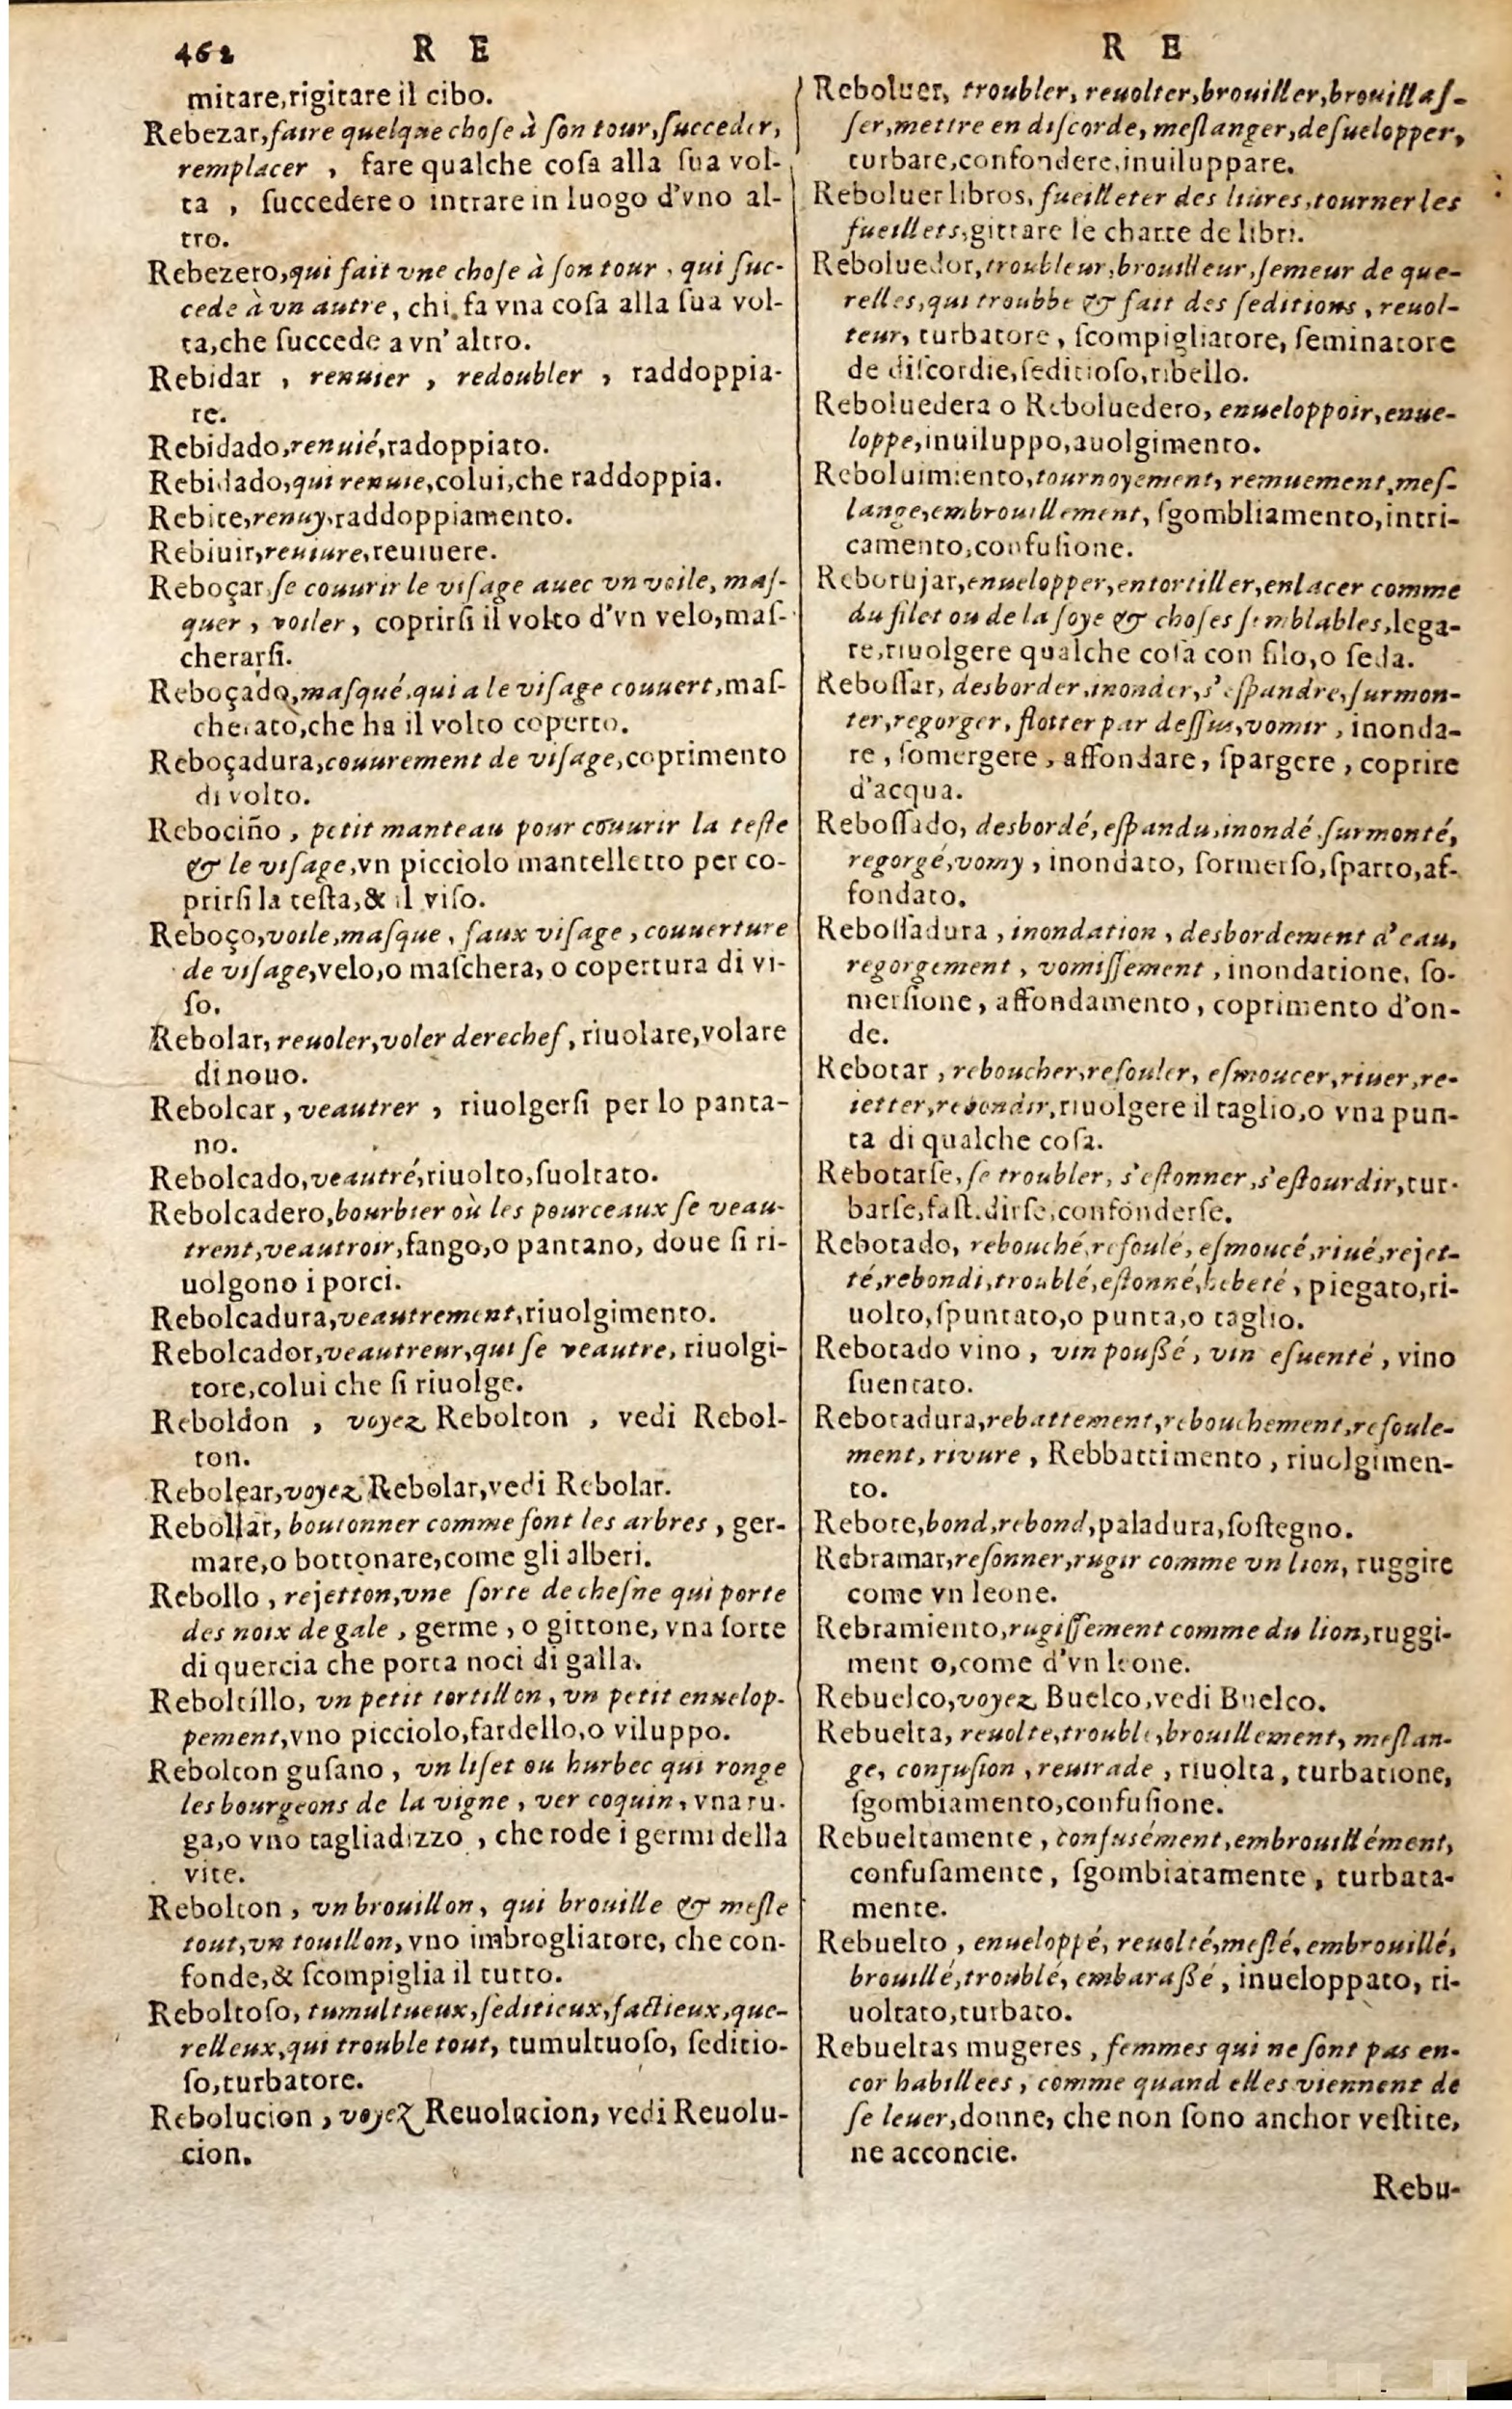 462 R E
mitare,rigitare il cibo.
Rebezar,faire quelque choſe à ſon tour,ſucceder,
remplacer , fare qualche coſa alla ſua vol-
ta , ſuccedere o intrare in luogo d'vno al-
tro.
Rebezero,qui fait vne choſe à ſon tour , qui ſuc-
cede à vn autre, chi fa vna coſa alla ſua vol-
ta,che ſuccede a vn' altro.
Rebidar , renuier , redoubler , raddoppia-
re.
Rebidado,renuié,radoppiato.
Rebidado,qui renuie,colui,che raddoppia.
Rebite,renuy,raddoppiamento.
Rebiuir,reuiure,reuiuere.
Reboçar,ſe couurir le viſage auec vn voile, maſ-
quer , voiler , coprirſi il volto d'vn velo,maſ-
cherarſi.
Reboçado,maſqué,qui a le viſage couuert,maſ-
cherato,che ha il volto coperto.
Reboçadura,couurement de viſage,coprimento
di volto.
Rebociño , petit manteau pour couurir la teſte
& le viſage,vn picciolo mantelletto per co-
prirſi la teſta,& il viſo.
Reboço,voile,maſque , faux viſage , couuerture
de viſage,velo,o maſchera, o copertura di vi-
ſo.
Rebolar, reuoler,voler derechef, riuolare,volare
di nouo.
Rebolcar , veautrer , riuolgerſi per lo panta-
no.
Rebolcado,veautré,riuolto,ſuoltato.
Rebolcadero,bourbier où les pourceaux ſe veau-
trent,veautroir,fango,o pantano, doue ſi ri-
uolgono i porci.
Rebolcadura,veautrement,riuolgimento.
Rebolcador,veautreur,qui ſe veautre, riuolgi-
tore,colui che ſi riuolge.
Reboldon , voyez Rebolton , vedi Rebol-
ton.
Rebolear,voyez Rebolar,vedi Rebolar.
Rebollar, boutonner comme font les arbres , ger-
mare,o bottonare,come gli alberi.
Rebollo , rejetton,vne ſorte de cheſne qui porte
des noix de gale , germe , o gittone, vna ſorte
di quercia che porta noci di galla.
Reboltillo, vn petit tortillon, vn petit enuelop-
pement,vno picciolo,fardello,o viluppo.
Rebolton guſano , vn liſet ou hurbec qui ronge
les bourgeons de la vigne , ver coquin, vna ru-
ga,o vno tagliadizzo , che rode i germi della
vite.
Rebolton , vn brouillon, qui brouille & meſle
tout,vn touillon, vno imbrogliatore, che con-
fonde,& ſcompiglia il tutto.
Reboltoſo, tumultueux,ſeditieux,factieux,que-
relleux,qui trouble tout, tumultuoſo, ſeditio-
ſo,turbatore.
Rebolucion , voyez Reuolucion, vedi Reuolu-
cion.
R E
Reboluer, troubler, reuolter,brouiller,brouillaſ-
ſer,mettre en diſcorde, meſlanger,deſuelopper,
turbare,confondere,inuiluppare.
Reboluer libros, fueilleter des liures,tourner les
fueillets,gittare le charte de libri.
Reboluedor,troubleur,brouilleur,ſemeur de que-
relles,qui troubbe & fait des ſeditions , reuol-
teur, turbatore , ſcompigliatore, ſeminatore
de diſcordie,ſeditioſo,ribello.
Reboluedera o Reboluedero, enueloppoir,enue-
loppe,inuiluppo,auolgimento.
Reboluimiento,tournoyement, remuement,meſ-
lange,embrouillement, ſgombliamento,intri-
camento,confuſione.
Reborujar,enuelopper,entortiller,enlacer comme
du filet ou de la ſoye & choſes ſemblables,lega-
re,riuolgere qualche coſa con filo,o ſeda.
Reboſſar, desborder,inonder,s'eſpandre,ſurmon-
ter,regorger, flotter par deſſus,vomir , inonda-
re , ſomergere , affondare, ſpargere , coprire
d'acqua.
Reboſſado, desbordé, eſpandu,inondé,ſurmonté,
regorgé,vomy , inondato, ſormerſo,ſparto,af-
fondato.
Reboſſadura , inondation , desbordement d'eau,
regorgement , vomiſſement , inondatione, ſo-
merſione, affondamento , coprimento d'on-
de.
Rebotar , reboucher,refouler, eſmoucer,riuer,re-
ietter,rebondir,riuolgere il taglio,o vna pun-
ta di qualche coſa.
Rebotarſe, ſe troubler, s'eſtonner,s'eſtourdir,tur-
barſe,faſtidirſe,confonderſe.
Rebotado, rebouché,refoulé, eſmoucé,riué,rejet-
té,rebondi,troublé,eſtonné,hebeté , piegato,ri-
uolto,ſpuntato,o punta,o taglio.
Rebotado vino , vin pouſſé , vin eſuenté , vino
ſuentato.
Rebotadura,rebattement,rebouchement,refoule-
ment, rivure , Rebbattimento , riuolgimen-
to.
Rebote,bond,rebond,paladura,ſoſtegno.
Rebramar,reſonner,rugir comme vn lion, ruggire
come vn leone.
Rebramiento,rugiſſement comme du lion,ruggi-
ment o,come d'vn leone.
Rebuelco,voyez Buelco,vedi Buelco.
Rebuelta, reuolte,trouble,brouillement, meſlan-
ge, confuſion , reuirade , riuolta , turbatione,
ſgombiamento,confuſione.
Rebueltamente , confusément,embrouillément,
confuſamente , ſgombiatamente , turbata-
mente.
Rebuelto , enueloppé, reuolté,meſlé, embrouillé,
brouillé,troublé, embaraſſé , inueloppato, ri-
uoltato,turbato.
Rebueltas mugeres , femmes qui ne ſont pas en-
cor habillees , comme quand elles viennent de
ſe leuer,donne, che non ſono anchor veſtite,
ne acconcie.
Rebu-